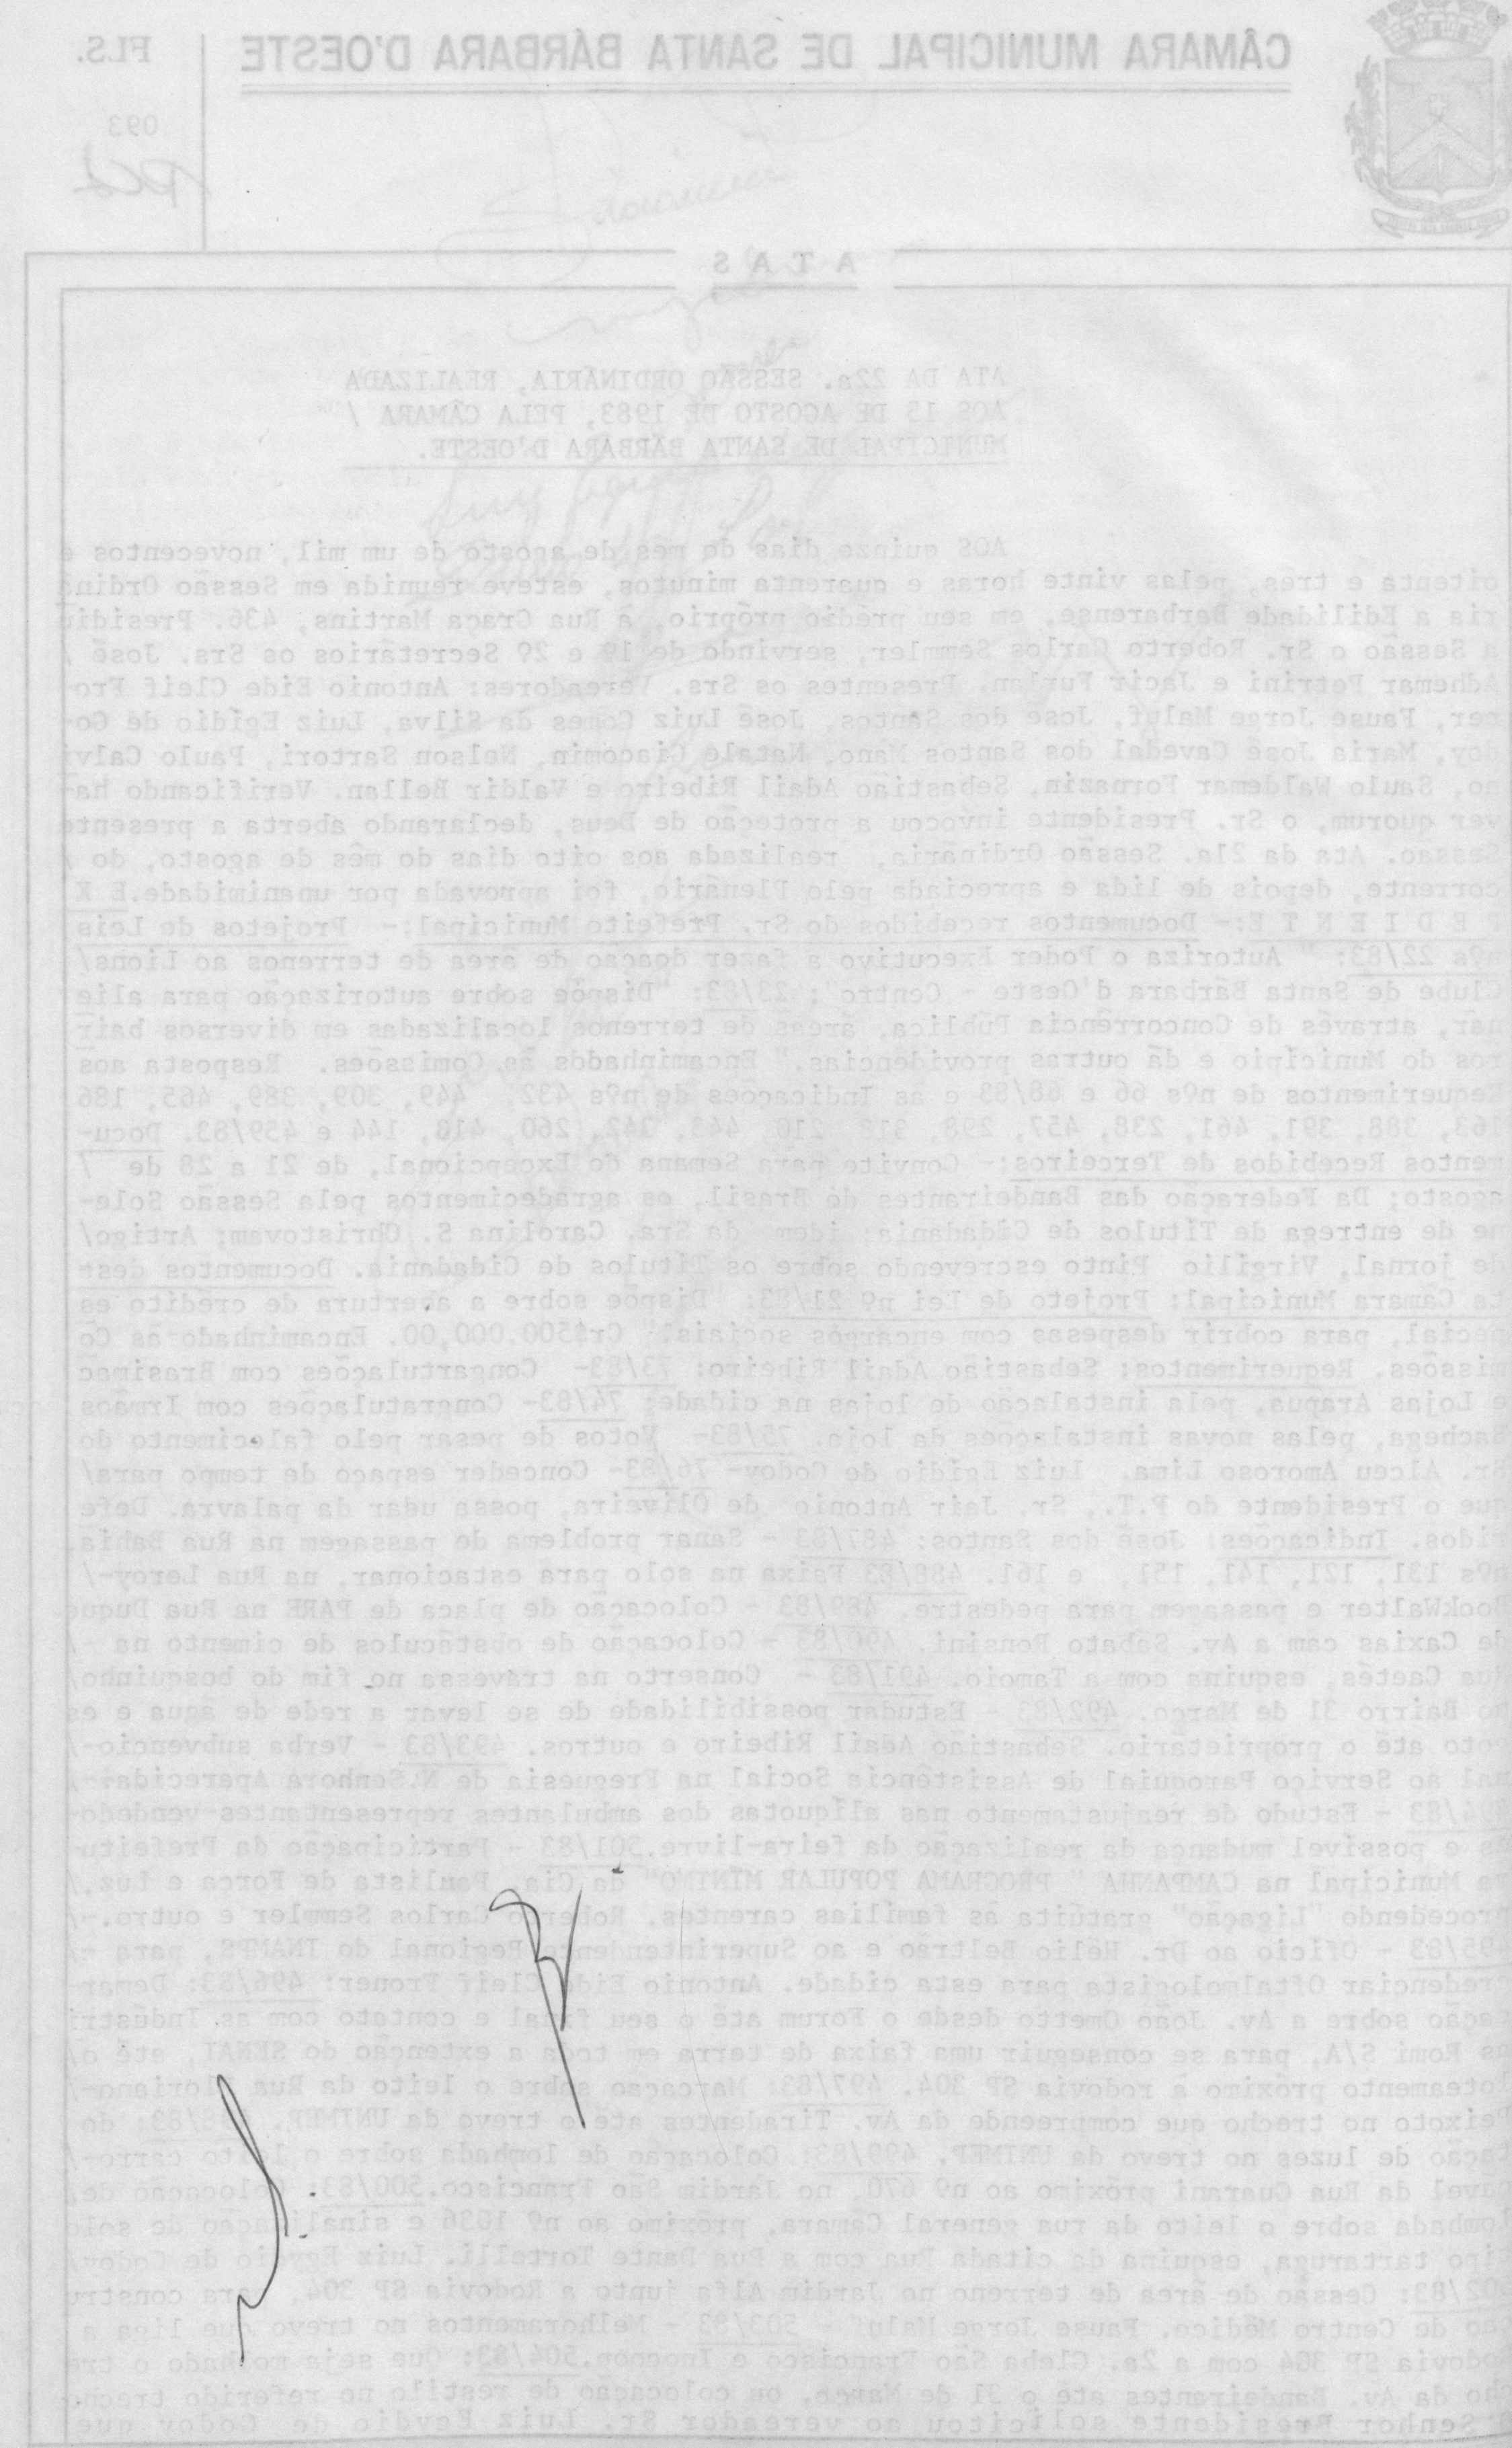 CÂMARA MUNICIPAL DE SANTA BÁRBARA D'OESTE
FLS.
093
A T A S
ATA DA 22a. SESSÃO ORDINÁRIA, REALIZADA
AOS 15 DE AGOSTO DE 1983, PELA CÂMARA /
MUNICIPAL DE SANTA BÁRBARA D'OESTE.
AOS quinze dias do mês de agosto de um mil, novecentos e
oitenta e tres, pelas vinte horas e quarenta minutos, esteve reunida em Sessão Ordiná
ria a Edilidade Barbarense, em seu prédio próprio, à Rua Graça Martins, 436. Presidiu
a Sessão o Sr. Roberto Carlos Semmler, servindo de 1º e 2º Secretários os Srs. José /
Adhemar Petrini e Jacir Furlan. Presentes os Srs. Vereadores: Antonio Eide Cleif Fro-
ner, Fause Jorge Maluf, José dos Santos, José Luiz Gomes da Silva, Luiz Egídio de Go-
doy, Maria José Cavedal dos Santos Mano, Natale Giacomin, Nelson Sartori, Paulo Calvi
no, Saulo Waldemar Fornazin, Sebastião Adail Ribeiro e Valdir Bellan. Verificando ha-
ver quorum, o Sr. Presidente invocou a proteção de Deus, declarando aberta a presente
Sessão. Ata da 21a. Sessão Ordinária, realizada aos oito dias do mês de agosto, do /
corrente, depois de lida e apreciada pelo Plenário, foi aprovada por unanimidade.E X
P E D I E N T E:- Documentos recebidos do Sr. Prefeito Municipal:- Projetos de Leis
nºs 22/83: " Autoriza o Poder Executivo a fazer doação de área de terrenos ao Lions/
Clube de Santa Bárbara d'Oeste - Centro"; 23/83: "Dispõe sobre autorização para alie
nar, através de Concorrência Pública, áreas de terrenos localizadas em diversos bair
ros do Município e dá outras providências." Encaminhados às Comissões. Resposta aos
Requerimentos de nºs 66 e 68/83 e às Indicações de nºs 432 449, 309, 389, 465, 186
163, 388, 391, 461, 238, 457, 298, 318 210, 443, 342, 260, 410, 144 e 459/83. Docu-
mentos Recebidos de Terceiros:- Convite para Semana do Excepcional, de 21 a 28 de /
agosto; Da Federação das Bandeirantes do Brasil, os agradecimentos pela Sessão Sole-
ne de entrega de Títulos de Cidadania; idem da Sra. Carolina S. Christovam; Artigo/
de jornal, Virgílio Pinto escrevendo sobre os Títulos de Cidadania. Documentos dest
ta Câmara Municipal: Projeto de Lei nº 21/83: "Dispõe sobre a abertura de crédito es
pecial, para cobrir despesas com encargos sociais." Cr$500.000,00. Encaminhado às Co
missões. Requerimentos: Sebastião Adail Ribeiro: 73/83- Congartulações com Brasimac
e Lojas Arapua, pela instalação de lojas na cidade; 74/83- Congratulações com Irmãos
Sachega, pelas novas instalações da loja. 75/83- Votos de pesar pelo falecimento do
Sr. Alceu Amoroso Lima. Luiz Egídio de Godoy- 76/83- Conceder espaço de tempo para/
que o Presidente do P.T., Sr. Jair Antonio de Oliveira, possa usar da palavra. Defe
ridos. Indicações: José dos Santos: 487/83 - Sanar problema de passagem na Rua Bahia
nºs 131, 121, 141, 151, e 161. 488/83 Faixa na solo para estacionar, na Rua Leroy-/
BookWalter e passagem para pedestre. 489/83 - Colocação de placa de PARE na Rua Duque
de Caxias cam a Av. Sábato Ronsini. 490/83 - Colocação de obstáculos de cimento na -/
Rua Caetés, esquina com a Tamoio. 491/83 - Conserto na travessa no fim do bosquinho/
no Bairro 31 de Março. 492/83 - Estudar possibilidade de se levar a rede de água e es
goto até o proprietário. Sebastião Adail Ribeiro e outros. 493/83 - Verba subvencio-/
nal ao Serviço Paroquial de Assistência Social na Freguesia de N.Senhora Aparecida.-/
494/83 - Estudo de reajustamento nas alíquotas dos ambulantes representantes-vendedo-
es e possível mudança da realização da feira-livre.501/83 - Participação da Prefeitu-
ra Municipal na CAMPANHA " PROGRAMA POPULAR MÍNIMO" da Cia. Paulista de Força e Luz,/
procedendo "Ligação" gratúita às famílias carentes. Roberto Carlos Semmler e outro.-/
495/83 - Ofício ao Dr. Hélio Beltrão e ao Superintendente Regional do INAMPS, para -/
credenciar Oftalmologista para esta cidade. Antonio Eide Cleif Froner: 496/83: Demar-
cação sobre a Av. João Ometto desde o Forum até o seu final e contato com as Indústri
as Romi S/A, para se conseguir uma faixa de terra em toda a extenção do SENAI, até o/
loteamento próximo à rodovia SP 304. 497/83: Marcação sobre o leito da Rua Floriano-/
Peixoto no trecho que compreende da Av. Tiradentes até o trevo da UNIMEP. 498/83: do
cação de luzes no trevo da UNIMEP. 499/83: Colocação de lombada sobre o leito carro-/
çavel da Rua Guarani próximo ao nº 670, no Jardim São Francisco.500/83: Colocação de/
lombada sobre o leito da rua general Câmara, próximo ao nº 1036 e sinalização de solo
tipo tartaruga, esquina da citada Rua com a Rua Dante Tortelli. Luiz Egydio de Godoy/
502/83: Cessão de área de terreno no Jardim Alfa junto a Rodovia SP 304, para constru
ção de Centro Médico. Fause Jorge Maluf - 503/83 - Melhoramentos no trevo que liga a
rodovia SP 304 com a 2a. Gleba São Francisco e Inocoop.504/83: Que seja molhado o tre
cho da Av. Bandeirantes até o 31 de Março, ou colocação de restilo no referido trecho.
O Senhor Presidente solicitou ao vereador Sr. Luiz Egydio de Godoy que